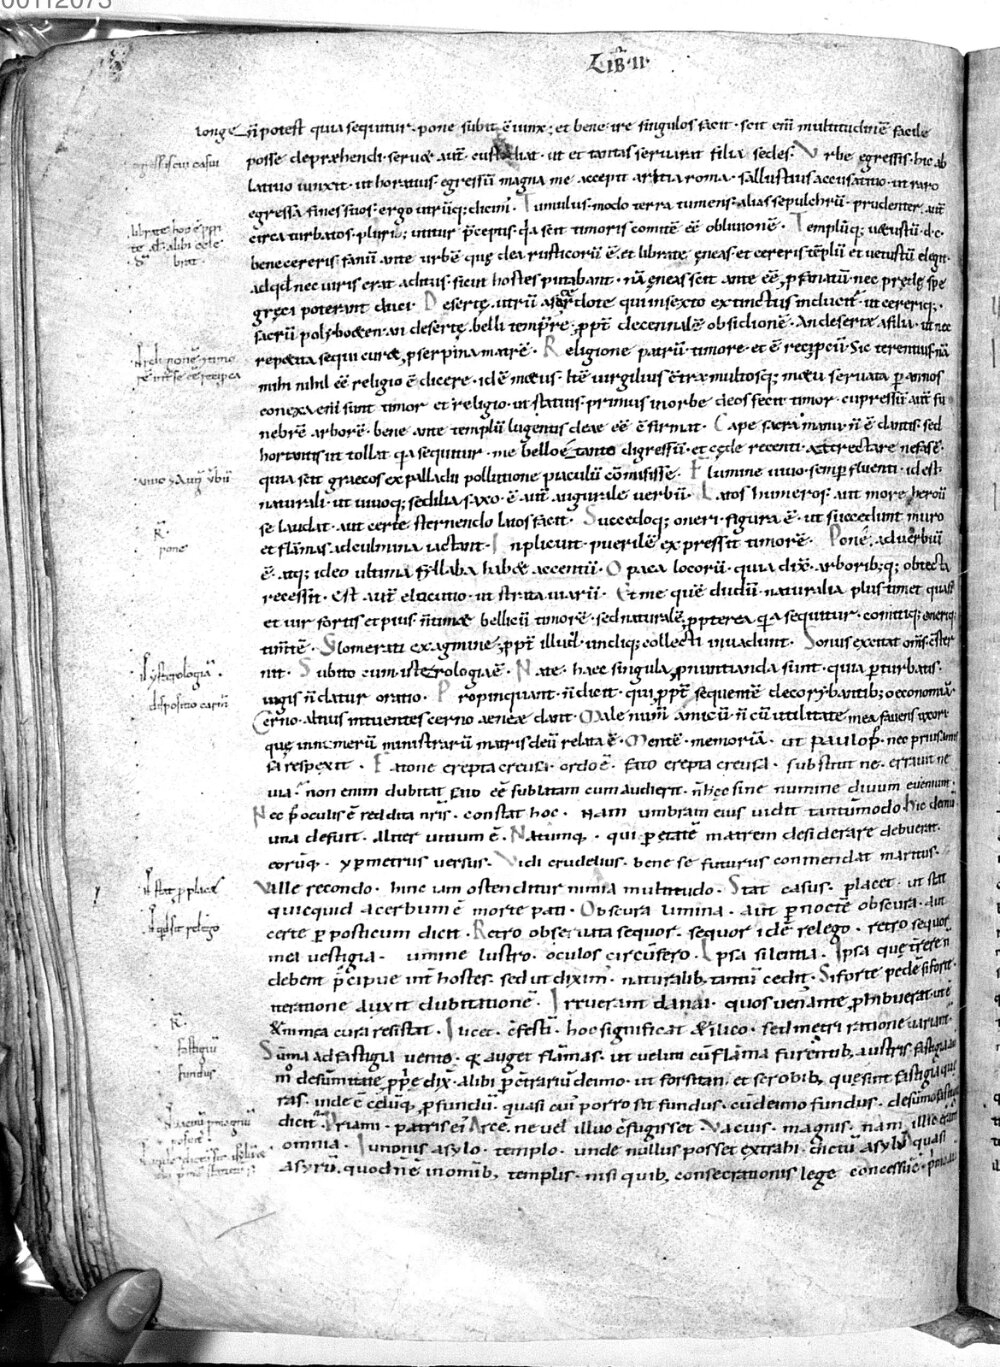 00112073
LIBR·II·
longe n̄ potest quia sequitur · pone subit ē iunx · et bene ire singulos facit · scit enī multitudinē facile
posse depræhendi · seruæ aūt · ut et tantas seruarit filia sedes · Vrbe egressis · hic ab
latiuo iunxit · ut horatius · egressū magna me accepit aritia roma · sallustius accusatiuo · ut raro
egressa fines suos · ergo utrūq; dicim̄ · Tumulus · modo terra tumens · alias sepulchrū · prudenter aūt
circa turbatos · plurib; utitur p̄ceptis · q̄a scit timoris comitē eē obliuionē · Templūq; uetustū · d·c·
bene cereris fanū ante urbē quę dea rusticorū ē · et librate ęneas · et cereris tēplū et uetustū elegit ·
ad qd̄ nec uiris erat aditus · sicut hostes putabant · nā ęneas scit ante eē p̄fanatū · nec
gręci poterant duci · Desertę · utrū a sacerdote qui in sexto extinctus inducit̄ · ut cererīq;
sacrū polyboeten · an desertę belli tempr̄e · p̄pt̄ decennalē obsidionē · An desertæ a filia · ut nec
repetita sequi curæ p̄serpina matrē · Religione patrū · timore · et ē reciprocū · Sic terentius · nā
mihi nihil eē religio ē dicere · id ē metus · Itē uirgilius · multosq; metu seruata p̄ annos
conexa enī sunt timor et religio · ut statius · primus in orbe deos fecit timor · cupressū aūt fu
nebrē arborē · bene ante templū lugentis deae eē firmat · Cape sacra manu · n̄ ē dantis · sed
hortantis ut tollat q̄a sequitur · me bello e tanto digressū · et cęde recenti · attrectare nefas ē ·
quia scit graecos ex palladii pollutione piaculū cōmisisse · Flumine uiuo · semp̄ fluenti · id est
naturali · ut uiuoq; sedilia saxo · ē aūt augurale uerbū · Latos humeros · aut more heroū
se laudat · aut certe sternendo latos facit · Succedoq; oneri · figura ē · ut succedunt muro
et flāmas ad culmina iactant · Inplicuit · puerilē expressit timorē · Pone · aduerbiū
ē · atq; ideo ultima syllaba habæ accentū · Opaca locorū · quia dix̄ · arborib;q; obtecta
recessit · Est aūt elocutio · ut strata uiarū · Et me quē dudū · naturalia plus timet quasi
et uir fortis et pius n̄ timæ bellicū timorē · sed naturalē p̄pterea q̄a sequitur · comitiq; oneriq;
timētē · Glomerati ex agmine p̄pt̄ illud · undiq; collecti inuadunt · Sonus excitat om̄s · ēster
nit · Subito cum · isterologia ē · Nate · haec singula p̄nuntianda sunt · quia p̄turbatis
uigis n̄ datur oratio · Propinquant · n̄ dicit · qui p̄pt̄ sequentē de corybantib; oeconomiā
Cerno · alius intuentes cerno aeneæ dant · Male num̄ amicū · n̄ cū utilitate mea fauens uxore
quę in numerū ministrarū matris deū relata ē · Mentē · memoriā · ut paulo p̄ · nec prius amis
sā respexit · Fatone erepta creusa · ordo ē · fato erepta creusa · substitit ne · errauit ne
uia · non enim dubitat fato eē sublatam cum audierit · n̄ hęc sine numine diuum eueniunt ·
Nec p̄ oculis ē reddita nr̄is · constat hoc · nam umbram eius uidit tantūmodo · hic demū
una defuit · aliter uitium ē · Natumq · qui p̄ etatē matrem desiderare debuerat ·
eorūq · ypermetrus uersus · Vidi crudelius · bene se futurus conmendat maritus ·
Valle recondo · hinc iam ostenditur nimia multitudo · Stat casus · placet · ut stat
quicquid acerbum ē morte pati · Obscura limina · aut p̄ noctē obscura · aut
certe p̄ posticum dicit · Retro obseruata sequor · sequor id ē relego · retro sequor
mea uestigia · lumine lustro · oculos circūfero · Ipsa silentia · Ipsa quę
debent p̄cipue int̄ hostes · sed ut diximꝰ · naturalib; tantū cedit · Si forte pedē si forte ·
iteratione auxit dubitationē · Irruerant danai · quos uenante p̄hibuerat
mea cura resistat · Ilicet · cōfestī · hoc significat & ilico · sed metri ratione uariant̄
Sūma ad fastigia uento · qd̄ auget flāmas · ut uelut cū flāma furentib; austris · fastigia aūt
m̊ desūmitate p̄p̄e dix̄ · alibi p̄ c̄trariū de imo · ut forsitan et scrobib; quę sint fastigia quę
ras · inde ē celūq; p̄fundū · quasi cui porro sit fundus · cū de imo fundus · de sūmo fastigiū
dicit · Priami · patris ei · Arcē · ne uel illuc c̄fugisset · Vacuis · magnis · nam illic erant
omnia · Iunonis asylo · templo · unde nullus posset extrahi · dictū asylū quasi
asyrū · quod n̄ ē in om̄ib; templis · nisi quib; consecrationis lege concessū ē ·
egressus cui casui
anno ɔ Augͥ ūbū
R̄
pone
ysterologiā ·
dispositio carm̄
stat p̄ placet
R̄
fastigiū
fundus